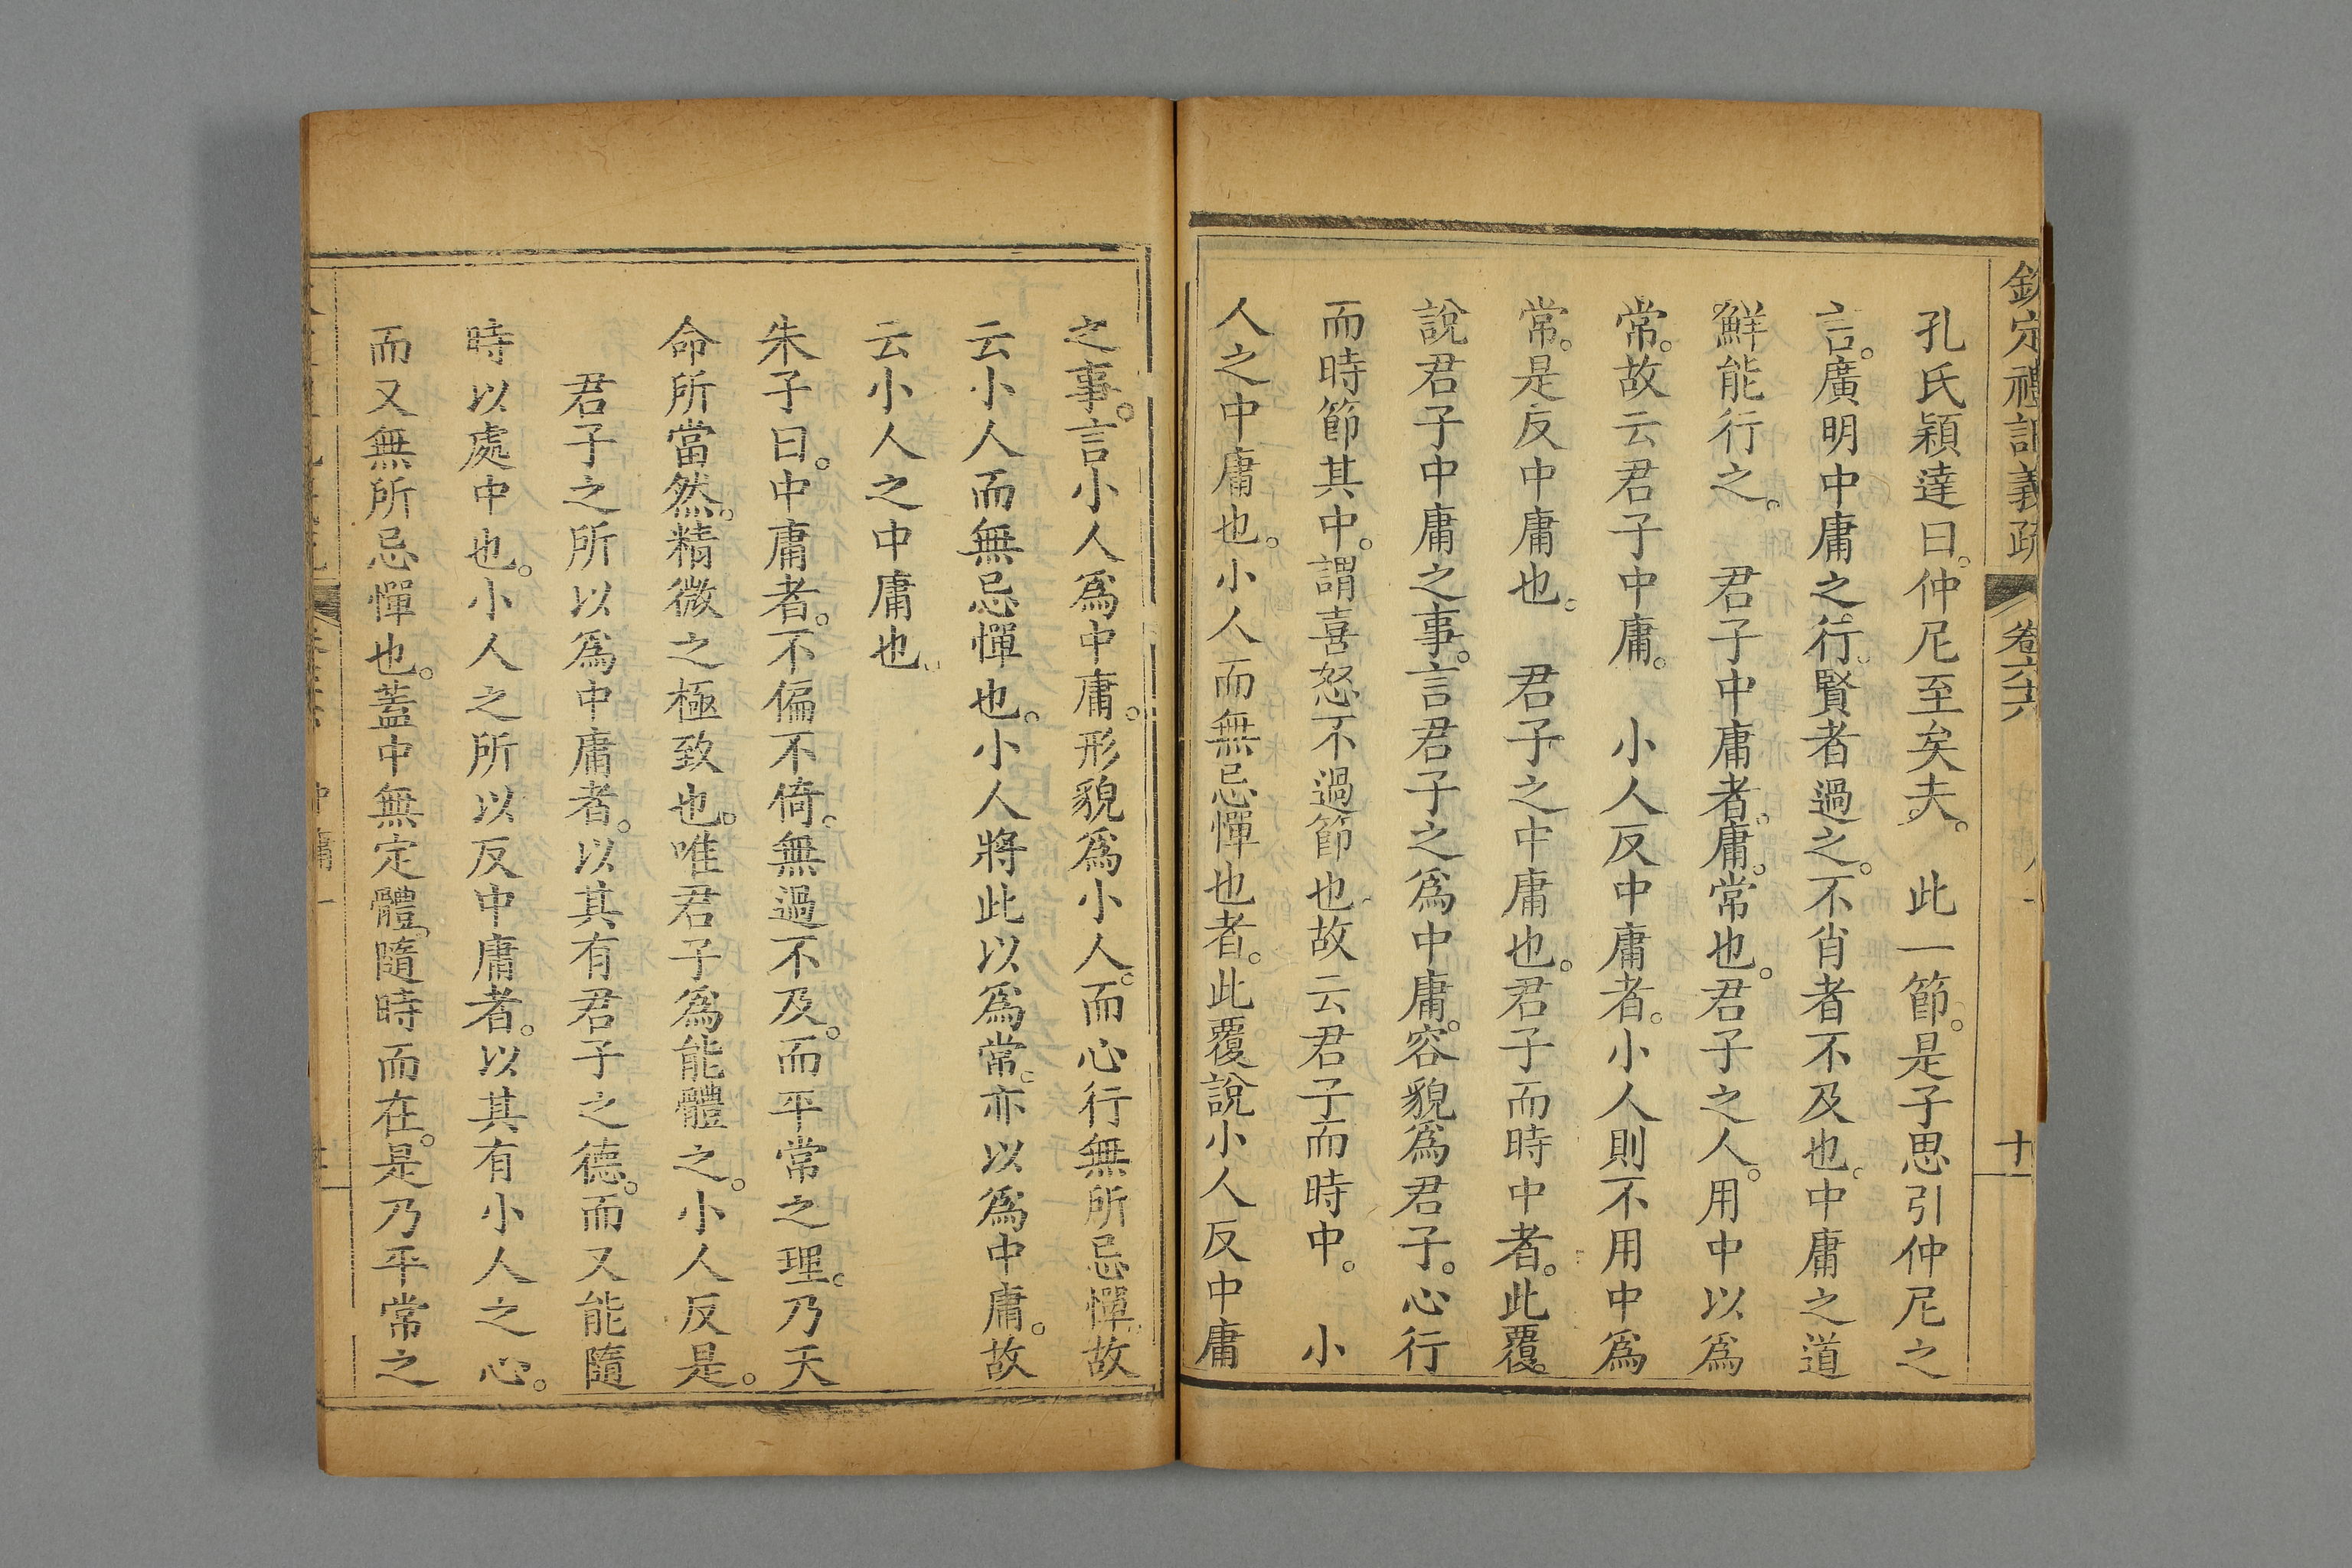 欽定禮記義疏 卷六十六 十
孔氏穎達曰。仲尼至矣夫。 此一節。是子思引仲尼之
言。廣明中庸之行。賢者過之。不肖者不及也。中庸之道
鮮能行之。 君子中庸者。庸。常也。君子之人。用中以爲
常。故云君子中庸。 小人反中庸者。小人則不用中爲
常。是反中庸也。 君子之中庸也。君子而時中者。此覆。
說君子中庸之事。言君子之爲中庸。容貌爲君子。心行
而時節其中。謂喜怒不過節也。故云君子而時中。 小
人之中庸也。小人而無忌憚也者。此覆說小人反中庸
之事。言小人爲中庸。形貌爲小人。而心行無所忌憚。故
云小人而無忌憚也。小人將此以爲常。亦以爲中庸。故
云小人之中庸也。
朱子曰。中庸者。不偏不倚。無過不及。而平常之理。乃天
命所當然。精微之極致也。唯君子爲能體之。小人反是。
君子之所以爲中庸者。以其有君子之德。而又能隨
時以處中也。小人之所以反中庸者。以其有小人之心。
而又無所忌憚也。蓋中無定體。隨時而在。是乃平常之